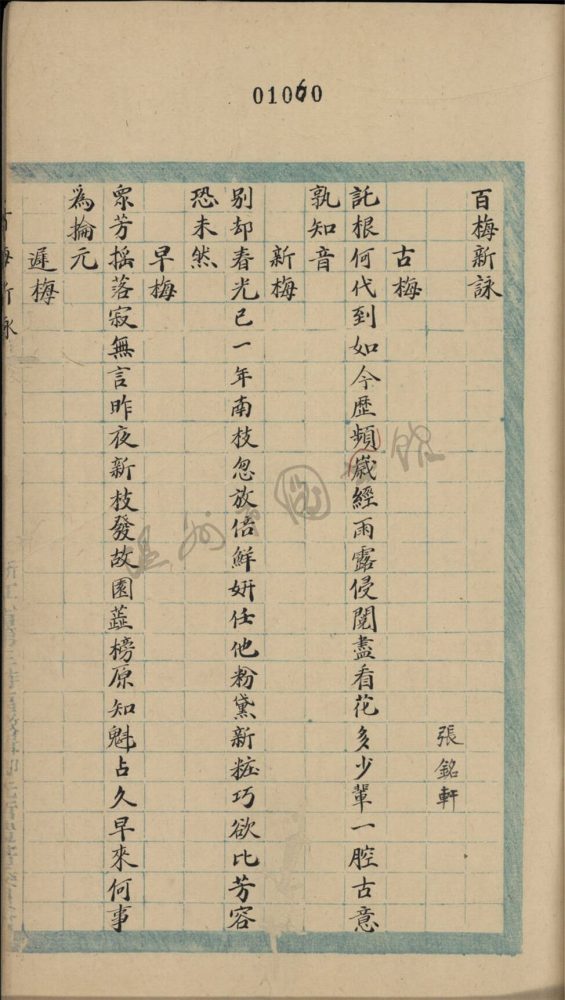 01060
百梅新詠
張銘軒
古梅
託根何代到如今歷頻嵗經雨露侵閱盡看花多少輩一腔古意
孰知音
新梅
别却春光已一年南枝忽放倍鮮妍任他粉黛新粧巧欲比芳容
恐未然
早梅
衆芳摇落寂無言昨夜新枝發故園蘂榜原知魁占久早來何事
為掄元
遲梅